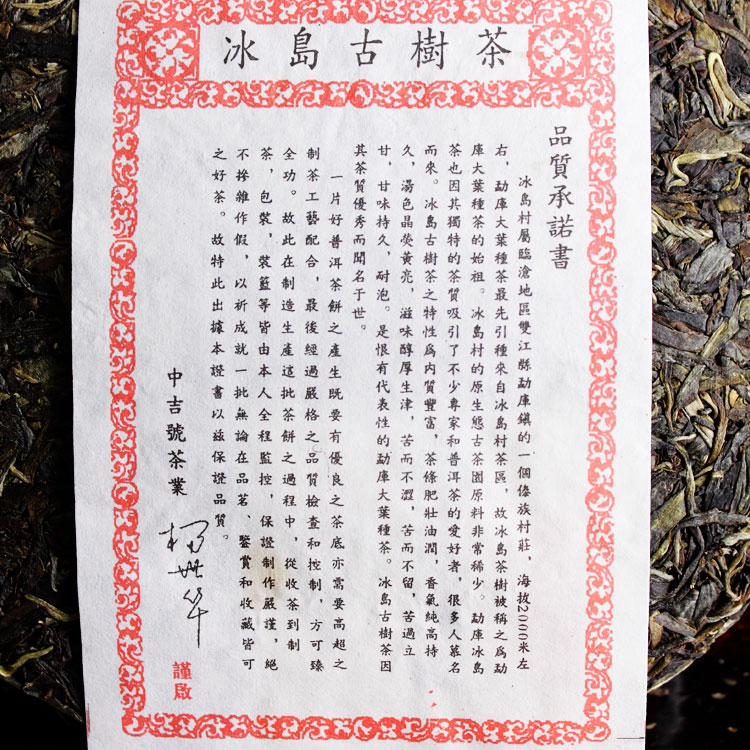 冰島古樹茶
品質承諾書
冰島村屬臨滄地區雙江縣勐庫鎮的一個傣族村莊，海拔2000米左
右，勐庫大葉種茶最先引種來自冰島村茶區，故冰島茶樹被稱之爲勐
庫大葉種茶的始祖。冰島村的原生態古茶園原料非常稀少。勐庫冰島
茶也因其獨特的茶質吸引了不少專家和普洱茶的愛好者，很多人慕名
而來。冰島古樹茶之特性爲内質豐富，茶條肥壯油潤，香氣純高持
久，湯色晶熒黄亮，滋味醇厚生津，苦而不澀，苦而不留，苦過立
甘，甘味持久，耐泡。是恨有代表性的勐庫大葉種茶。冰島古樹茶因
其茶質優秀而聞名于世。
一片好普洱茶餅之產生既要有優良之茶底亦需要高超之
制茶工藝配合，最後經過嚴格之品質檢查和控制，方可臻
全功。故此在制造生產這批茶餅之過程中，從收茶到制
茶，包裝，裝籃等皆由本人全程監控，保證制作嚴謹，絕
不摻雜作假，以祈成就一批無論在品茗、鑒賞和收藏皆可
之好茶。故特此出據本證書以兹保證品質。
中吉號茶業
楊世华
謹啟